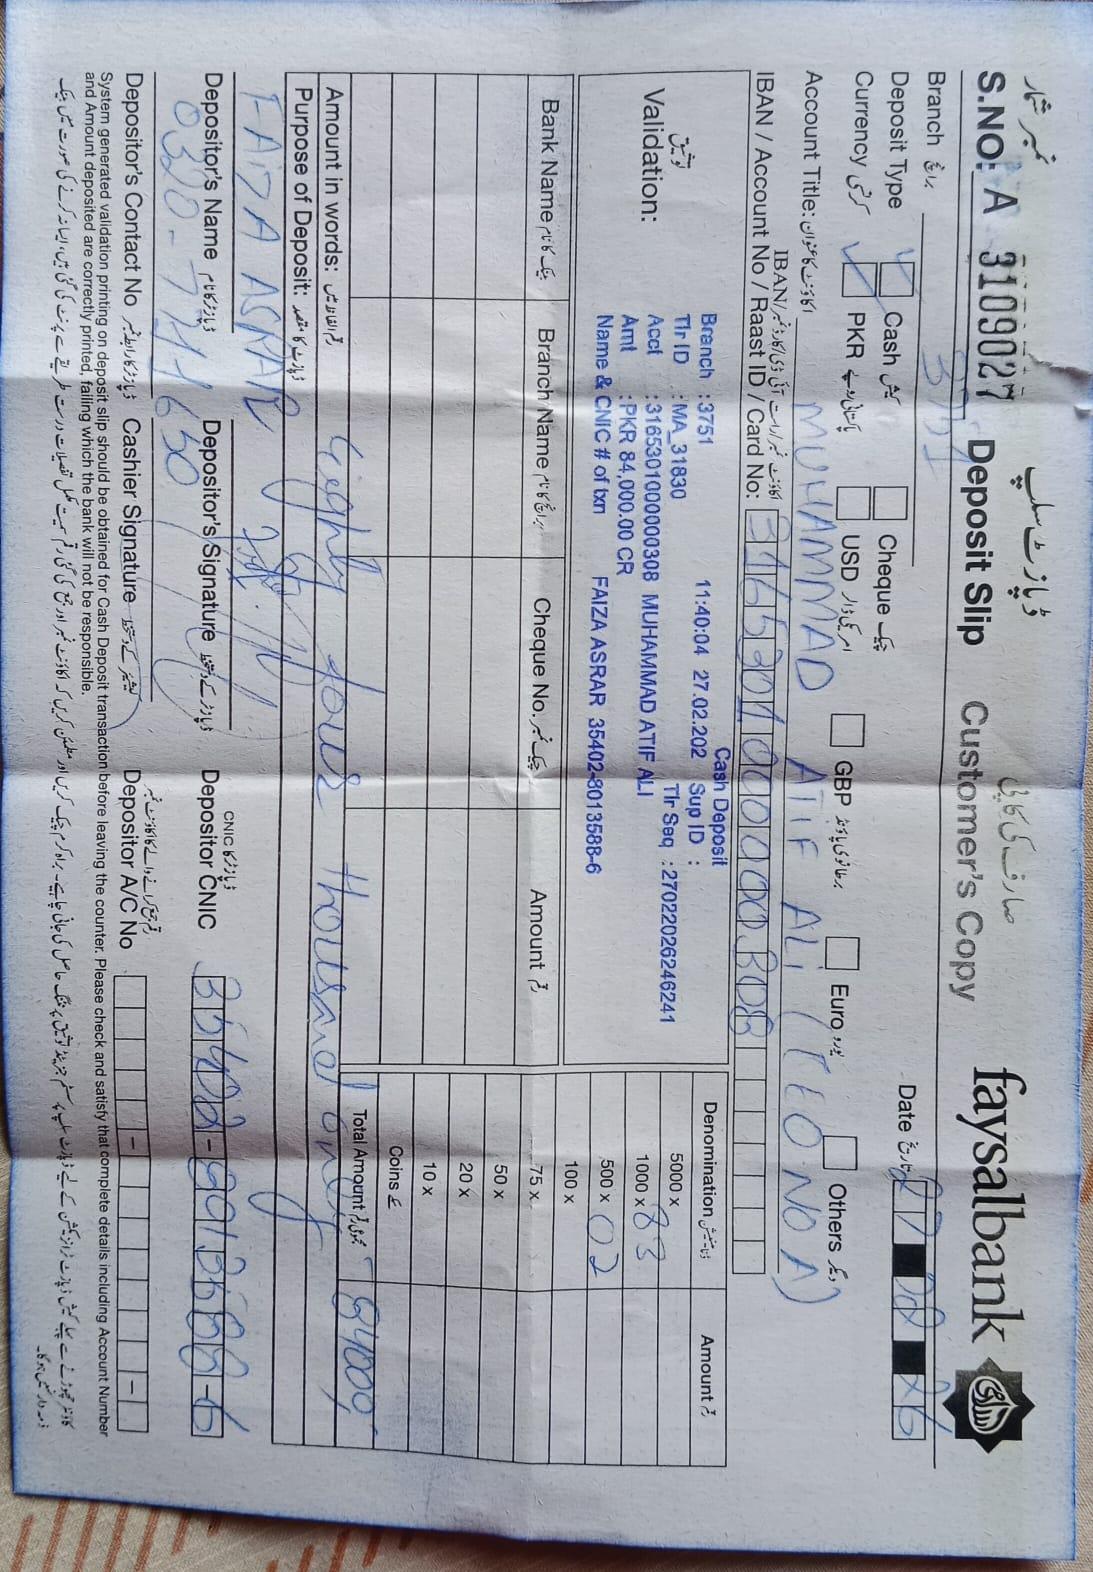 نمبر شمار ڈپازٹ سلپ صارف کی کاپی
S.NO: A 3109027 Deposit Slip Customer's Copy faysalbank
Branch برانچ Date تاریخ 27 02
Deposit Type Cash کیش Cheque چیک
Currency کرنسی PKR پاکستانی روپے USD امریکی ڈالر GBP برطانوی پاؤنڈ Euro یورو Others دیگر
Account Title: اکاؤنٹ کا عنوان MUHAMMAD ATIF ALI
IBAN / Account No / Raast ID / Card No: 3165301000000308
توثیق
Validation:
Cash Deposit
Branch : 3751 11:40:04 27.02.202 Sup ID :
Tlr ID : MA_31830 Tlr Seq : 27022026246241
Acct : 3165301000000308 MUHAMMAD ATIF ALI
Amt : PKR 84,000.00 CR
Name & CNIC # of txn FAIZA ASRAR 35402-8013588-6
Denomination Amount رقم
5000 x
1000 x 83
500 x 02
100 x
75 x
50 x
20 x
10 x
Coins سکے
Total Amount 84000
Bank Name بینک کا نام Branch Name برانچ کا نام Cheque No. چیک نمبر Amount رقم
Amount in words: Eighty four thousand only
Purpose of Deposit: ڈپازٹ کا مقصد
FAIZA ASRAR
Depositor's Name Depositor's Signature ڈپازٹر کا CNIC
Depositor CNIC
Depositor's Contact No Cashier Signature Depositor A/C No
System generated validation printing on deposit slip should be obtained for Cash Deposit transaction before leaving the counter. Please check and satisfy that complete details including Account Number
and Amount deposited are correctly printed, failing which the bank will not be responsible.